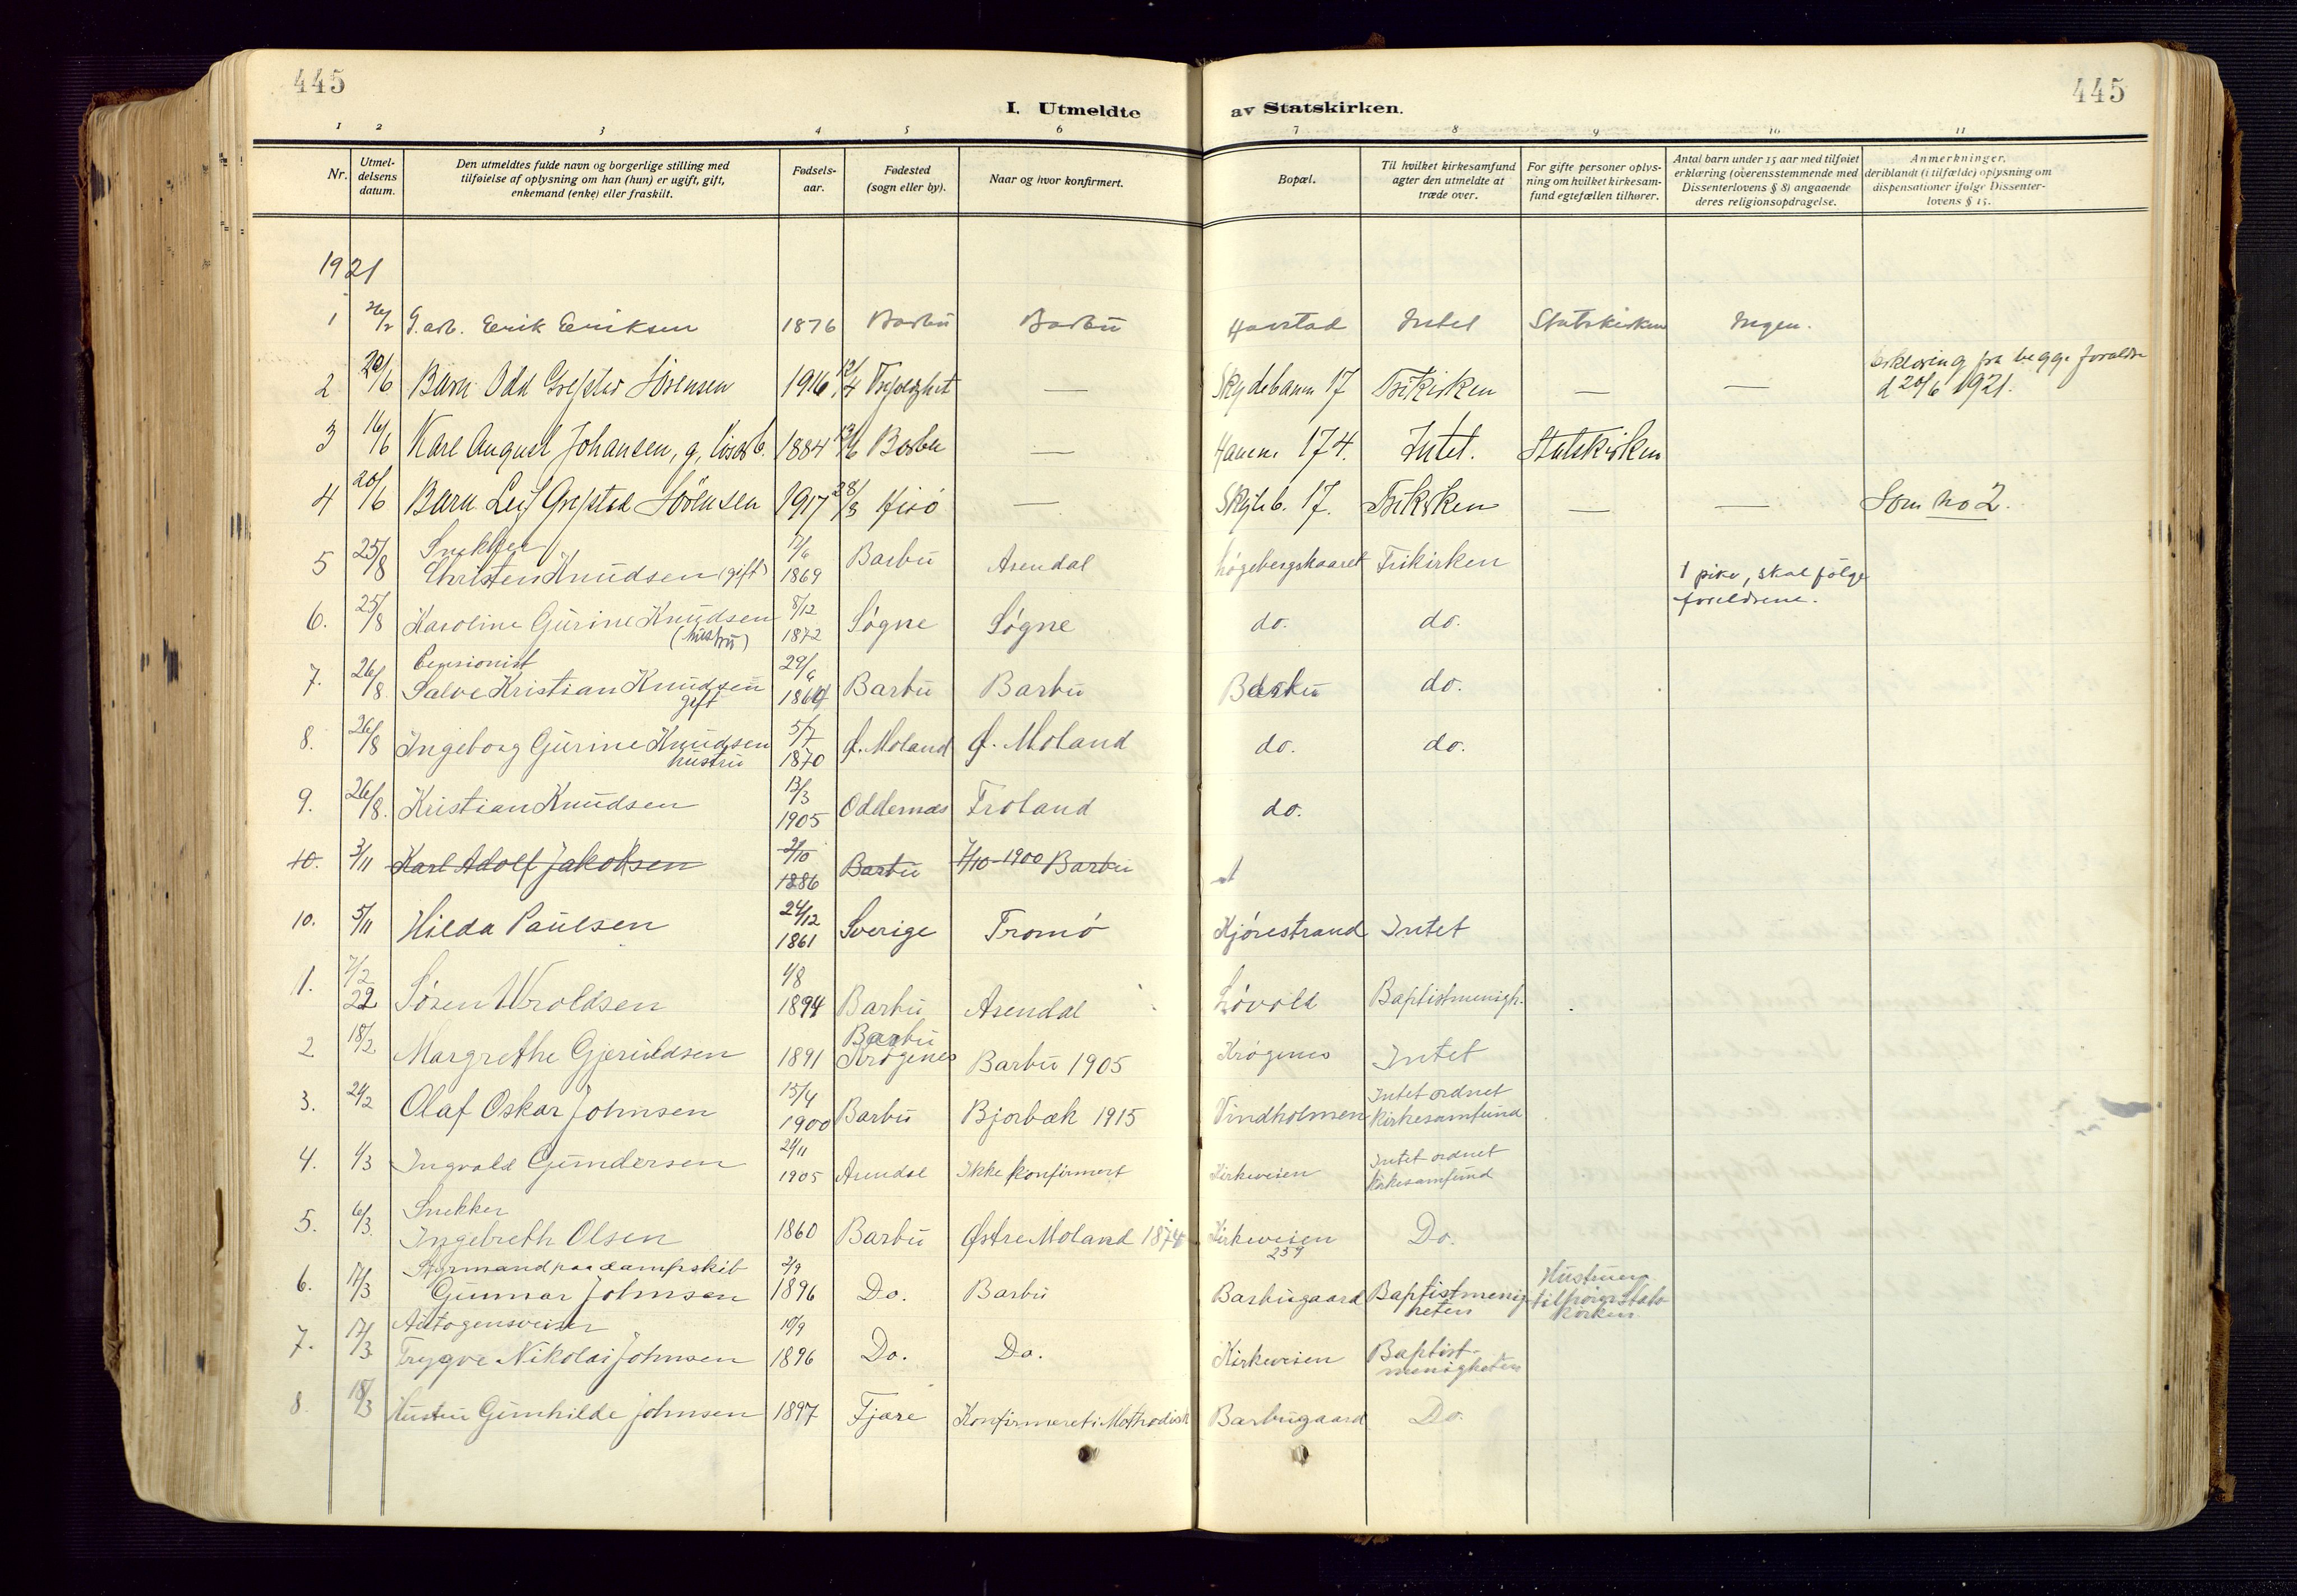 445
445
I. Utmeldte av Statskirken.
1 2 3 4 5 6 7 8 9 10 11
Nr.
Utmel-
delsens
datum.
Den utmeldtes fulde navn og borgerlige stilling med
tilføielse af oplysning om han (hun) er ugift, gift,
enkemand (enke) eller fraskilt.
Fødsels-
aar.
Fødested
(sogn eller by).
Naar og hvor konfirmert.
Bopæl.
Til hvilket kirkesamfund
agter den utmeldte at
træde over.
For gifte personer oplys-
ning om hvilket kirkesam-
fund egtefællen tilhører.
Antal barn under 15 aar med tilføiet
erklæring (overensstemmende med
Dissenterlovens § 8) angaaende
deres religionsopdragelse.
Anmerkninger,
deriblandt (i tilfælde) oplysning om
dispensationer ifølge Dissenter-
lovens § 15.
1921
1 G. arb. Erik Eriksen 1876 Barbu Barbu Havstad Intet Statskirken Ingen.
Erklæring fra begge forældre
2 20/6 Barn Odd Grefstad Sörensen 1916 12/4 — Skydebanen 17 Frikirken — — d 20/6 1921.
3 16/6 Karl August Johansen, g. 1884 Barbu — 174. Intet. Statskirken
4 20/6 Barn Leif Grefstad Sörensen 1917 28/3 Hisö — Skydeb. 17. Frikirken — — Som no 2.
5 25/8 Snekker 1869 Barbu Arendal Frikirken —
Christen Knudsen (gift)
1 pike, skal følge
forældrene.
6. 25/8 Karoline Gurine Knudsen 8/12 1872 Søgne Søgne do. do.
(hustru)
7. 26/8. Pensionist 29/6
Salve Kristian Knudsen Barbu Barbu Barbu do.
gift
8. 26/8 Ingeborg Gurine Knudsen 5/7 1870 Ø. Moland Ø. Moland do. do.
hustru
9. 26/8. Kristian Knudsen 13/3 1905 Oddernæs Froland do.
10. 3/11 Karl Adolf Jakobsen 2/10 1886 Barbu 7/10-1900 Barbu
10. 5/11 Hilda Paulsen 24/12 1861 Sverige Tromø Kjørestrand Intet
1. 7/2 22 Søren Wroldsen 1/8 1894 Barbu Arendal Løvold Baptistmenigh.
2 18/2 Margrethe Gjeruldsen 1891 Barbu Krøgenes Barbu 1905 Krøgenes Intet
3. 24/2 Olaf Oskar Johnsen 15/4 1900 Barbu Bjorbæk 1915 Vindholmen Intet ordnet
Kirkesamfund
4. 1/3 Ingvald Gundersen 1905 Arendal Ikke konfirmert Kirkeveien Intet ordnet
Kirkesamfund
5. 6/3. Snekker
Ingebreth Olsen 1860 Barbu Østre Moland 1874 Kirkeveien Do.
259
6. 17/3 Styrmand paa dampskib 2/9
Gunnar Johnsen 1896 Do. Barbu Barbugaard Baptistmenig-
heten
Hustruen
tilhører Stats
kirken
7. 17/3 Autogensveiser 10/9
Trygve Nikolai Johnsen 1896 Do. Do. Kirkeveien Baptist-
menigheten
8. 18/3 Hustru Gunhilde Johnsen 1897 Fjære Konfirmeret i Methodisk Barbugaard Do.